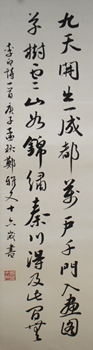 九天開出一成都萬戶千門入畫圖
草樹雲山如錦繡秦川得及此間無
李白詩一首庚子孟秋鄭文十六歲書